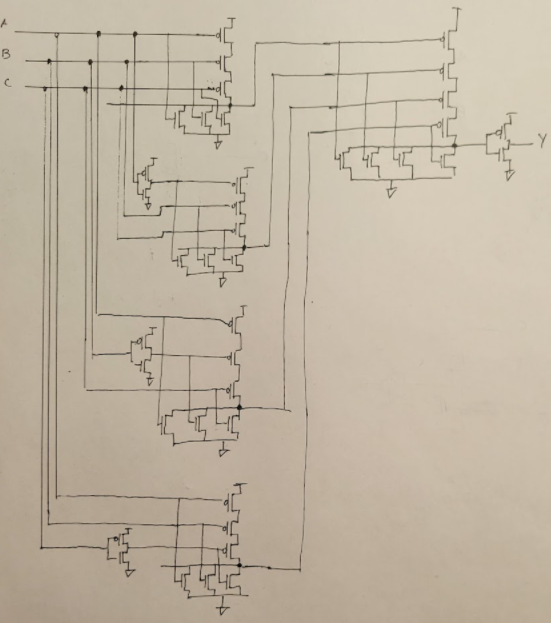 A
B
C
Y